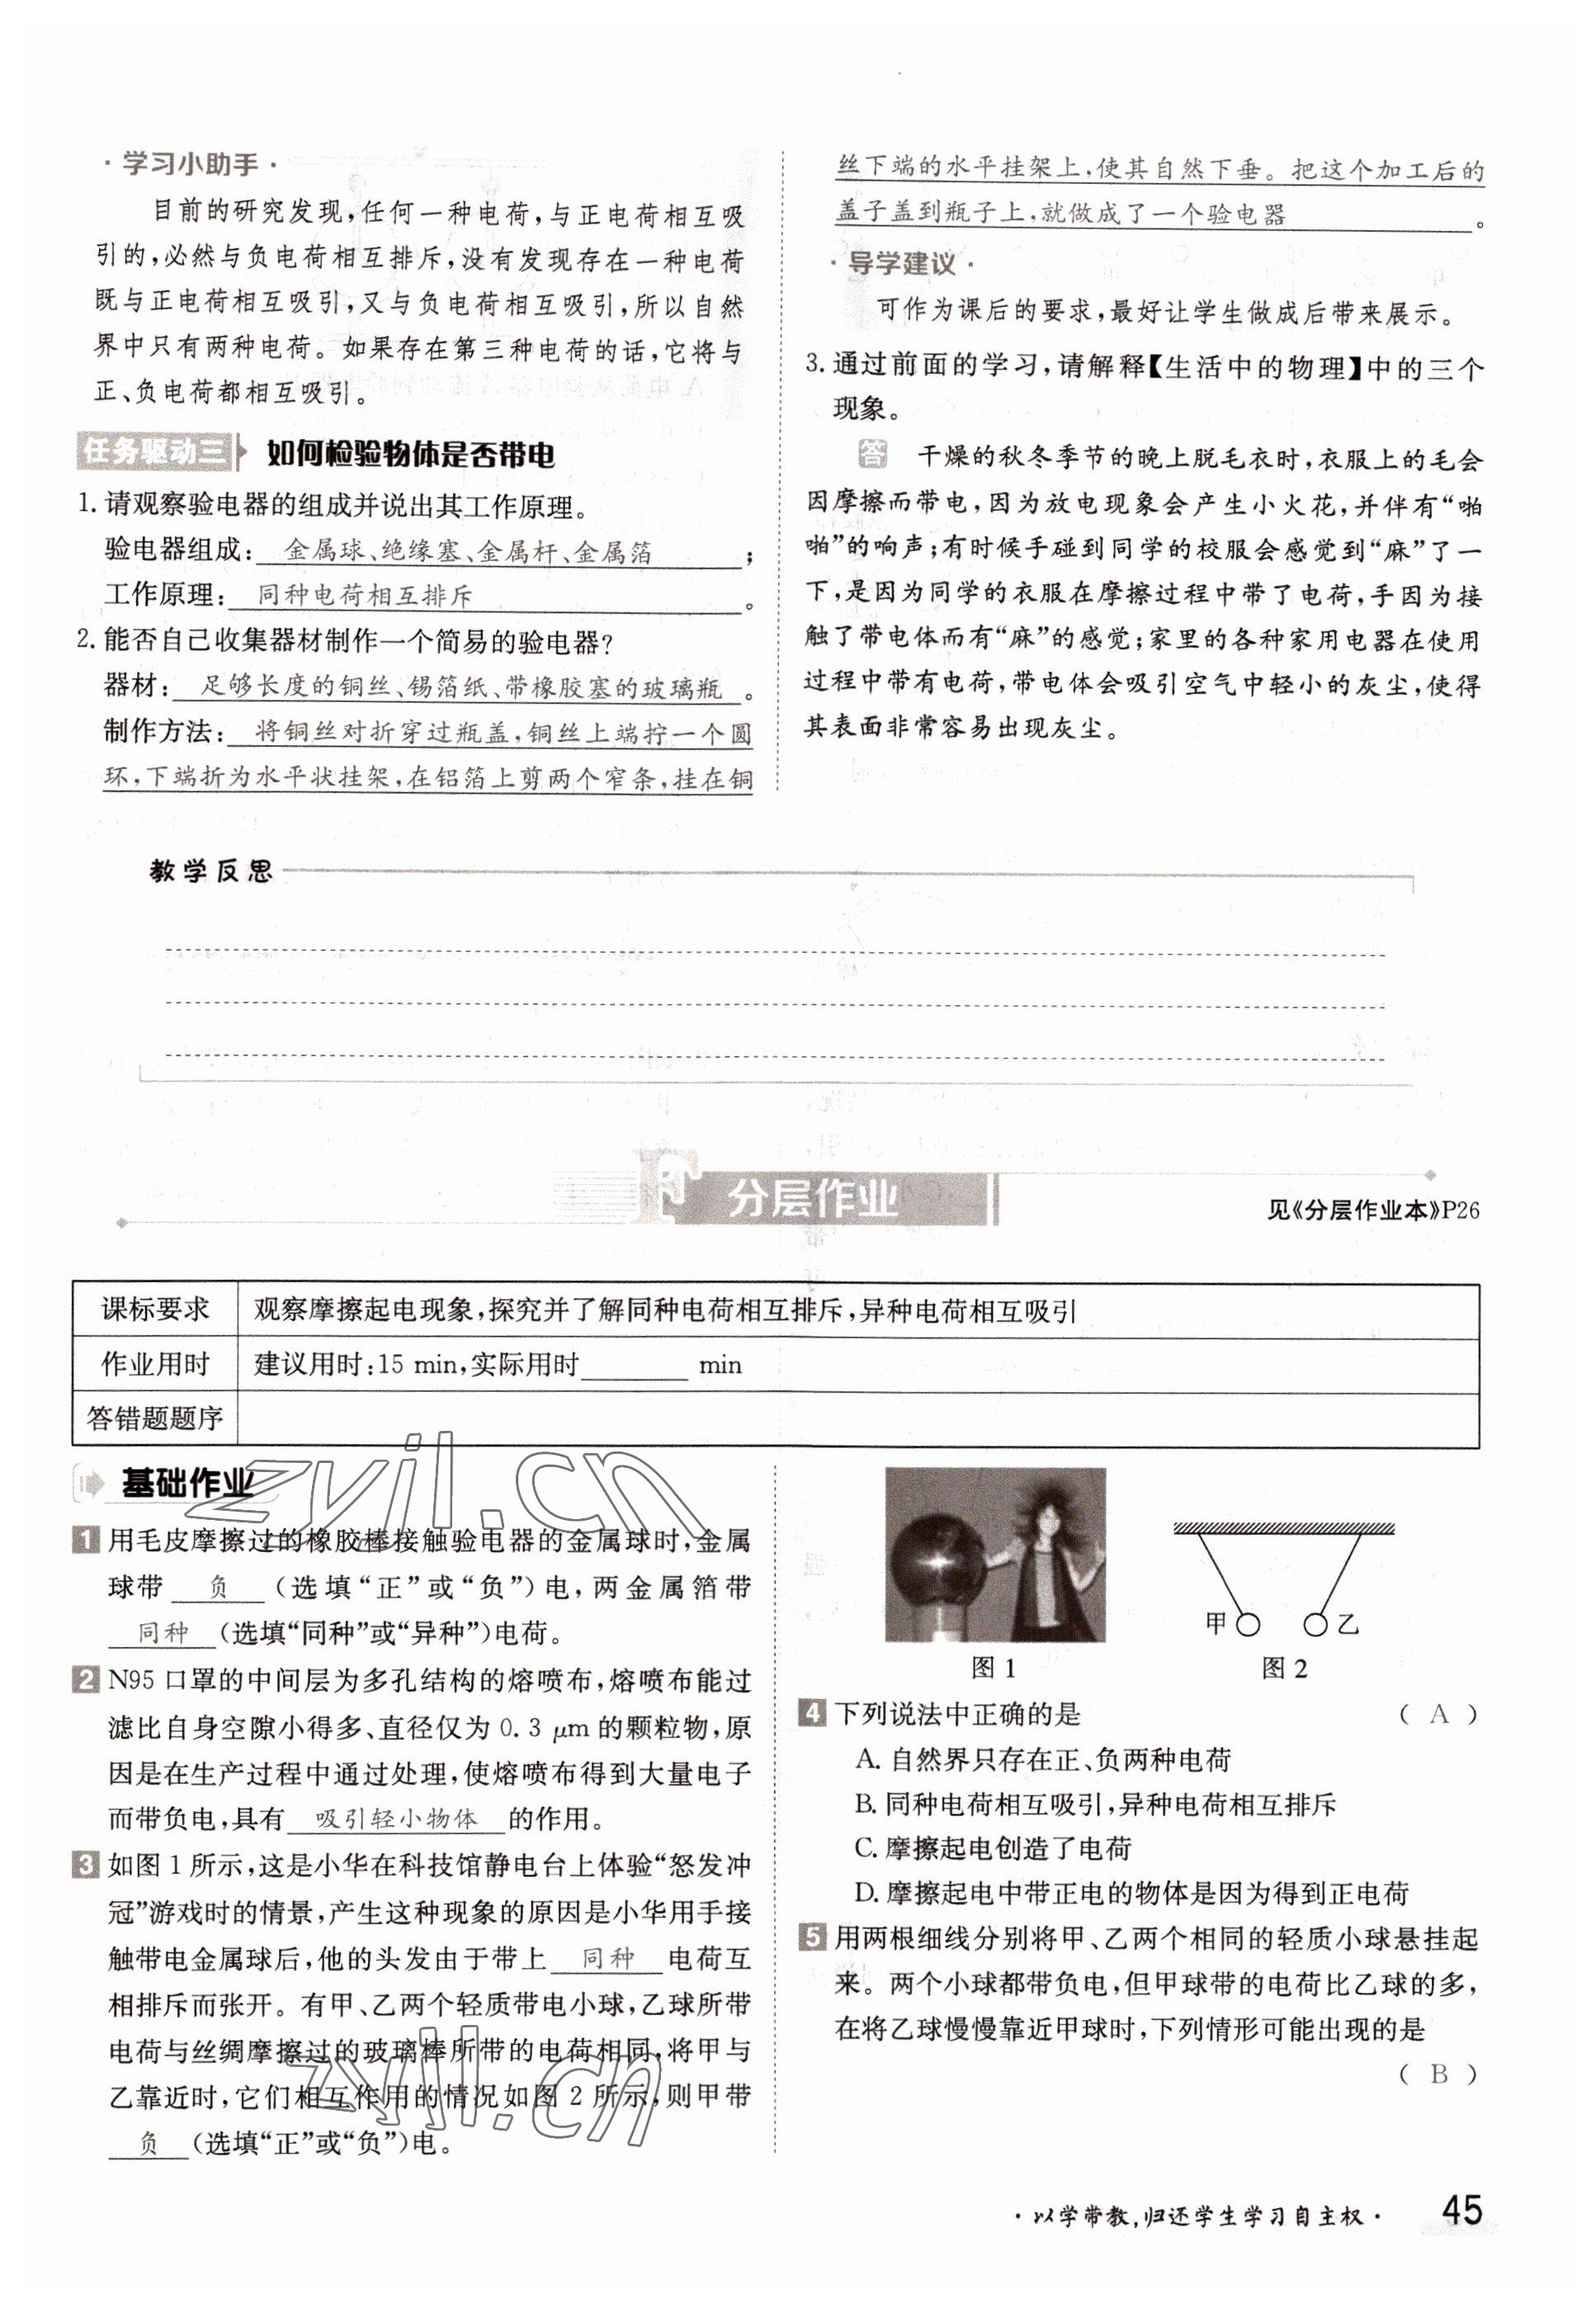 ·学习小助手·
目前的研究发现,任何一种电荷,与正电荷相互吸
引的,必然与负电荷相互排斥,没有发现存在一种电荷
既与正电荷相互吸引,又与负电荷相互吸引,所以自然
界中只有两种电荷。如果存在第三种电荷的话,它将与
正、负电荷都相互吸引。
任务驱动三 如何检验物体是否带电
1. 请观察验电器的组成并说出其工作原理。
验电器组成: 金属球、绝缘塞、金属杆、金属箔 ;
工作原理: 同种电荷相互排斥 。
2. 能否自己收集器材制作一个简易的验电器?
器材: 足够长度的铜丝、锡箔纸、带橡胶塞的玻璃瓶 。
制作方法: 将铜丝对折穿过瓶盖,铜丝上端拧一个圆
环,下端折为水平状挂架,在铝箔上剪两个窄条,挂在铜
丝下端的水平挂架上,使其自然下垂。把这个加工后的
盖子盖到瓶子上,就做成了一个验电器 。
·导学建议·
可作为课后的要求,最好让学生做成后带来展示。
3. 通过前面的学习,请解释【生活中的物理】中的三个
现象。
答 干燥的秋冬季节的晚上脱毛衣时,衣服上的毛会
因摩擦而带电,因为放电现象会产生小火花,并伴有“啪
啪”的响声;有时候手碰到同学的校服会感觉到“麻”了一
下,是因为同学的衣服在摩擦过程中带了电荷,手因为接
触了带电体而有“麻”的感觉;家里的各种家用电器在使用
过程中带有电荷,带电体会吸引空气中轻小的灰尘,使得
其表面非常容易出现灰尘。
教学反思
F 分层作业
见《分层作业本》P26
课标要求 观察摩擦起电现象,探究并了解同种电荷相互排斥,异种电荷相互吸引
作业用时 建议用时:15 min,实际用时________ min
答错题题序
基础作业
1 用毛皮摩擦过的橡胶棒接触验电器的金属球时,金属
球带 负 (选填“正”或“负”)电,两金属箔带
同种 (选填“同种”或“异种”)电荷。
2 N95 口罩的中间层为多孔结构的熔喷布,熔喷布能过
滤比自身空隙小得多、直径仅为 0.3 μm 的颗粒物,原
因是在生产过程中通过处理,使熔喷布得到大量电子
而带负电,具有 吸引轻小物体 的作用。
3 如图 1 所示,这是小华在科技馆静电台上体验“怒发冲
冠”游戏时的情景,产生这种现象的原因是小华用手接
触带电金属球后,他的头发由于带上 同种 电荷互
相排斥而张开。有甲、乙两个轻质带电小球,乙球所带
电荷与丝绸摩擦过的玻璃棒所带的电荷相同,将甲与
乙靠近时,它们相互作用的情况如图 2 所示,则甲带
负 (选填“正”或“负”)电。
甲 乙
图 1 图 2
4 下列说法中正确的是 ( A )
A. 自然界只存在正、负两种电荷
B. 同种电荷相互吸引,异种电荷相互排斥
C. 摩擦起电创造了电荷
D. 摩擦起电中带正电的物体是因为得到正电荷
5 用两根细线分别将甲、乙两个相同的轻质小球悬挂起
来。两个小球都带负电,但甲球带的电荷比乙球的多,
在将乙球慢慢靠近甲球时,下列情形可能出现的是
( B )
·以学带教,归还学生学习自主权· 45
zyjl.cn
zyjl.cn